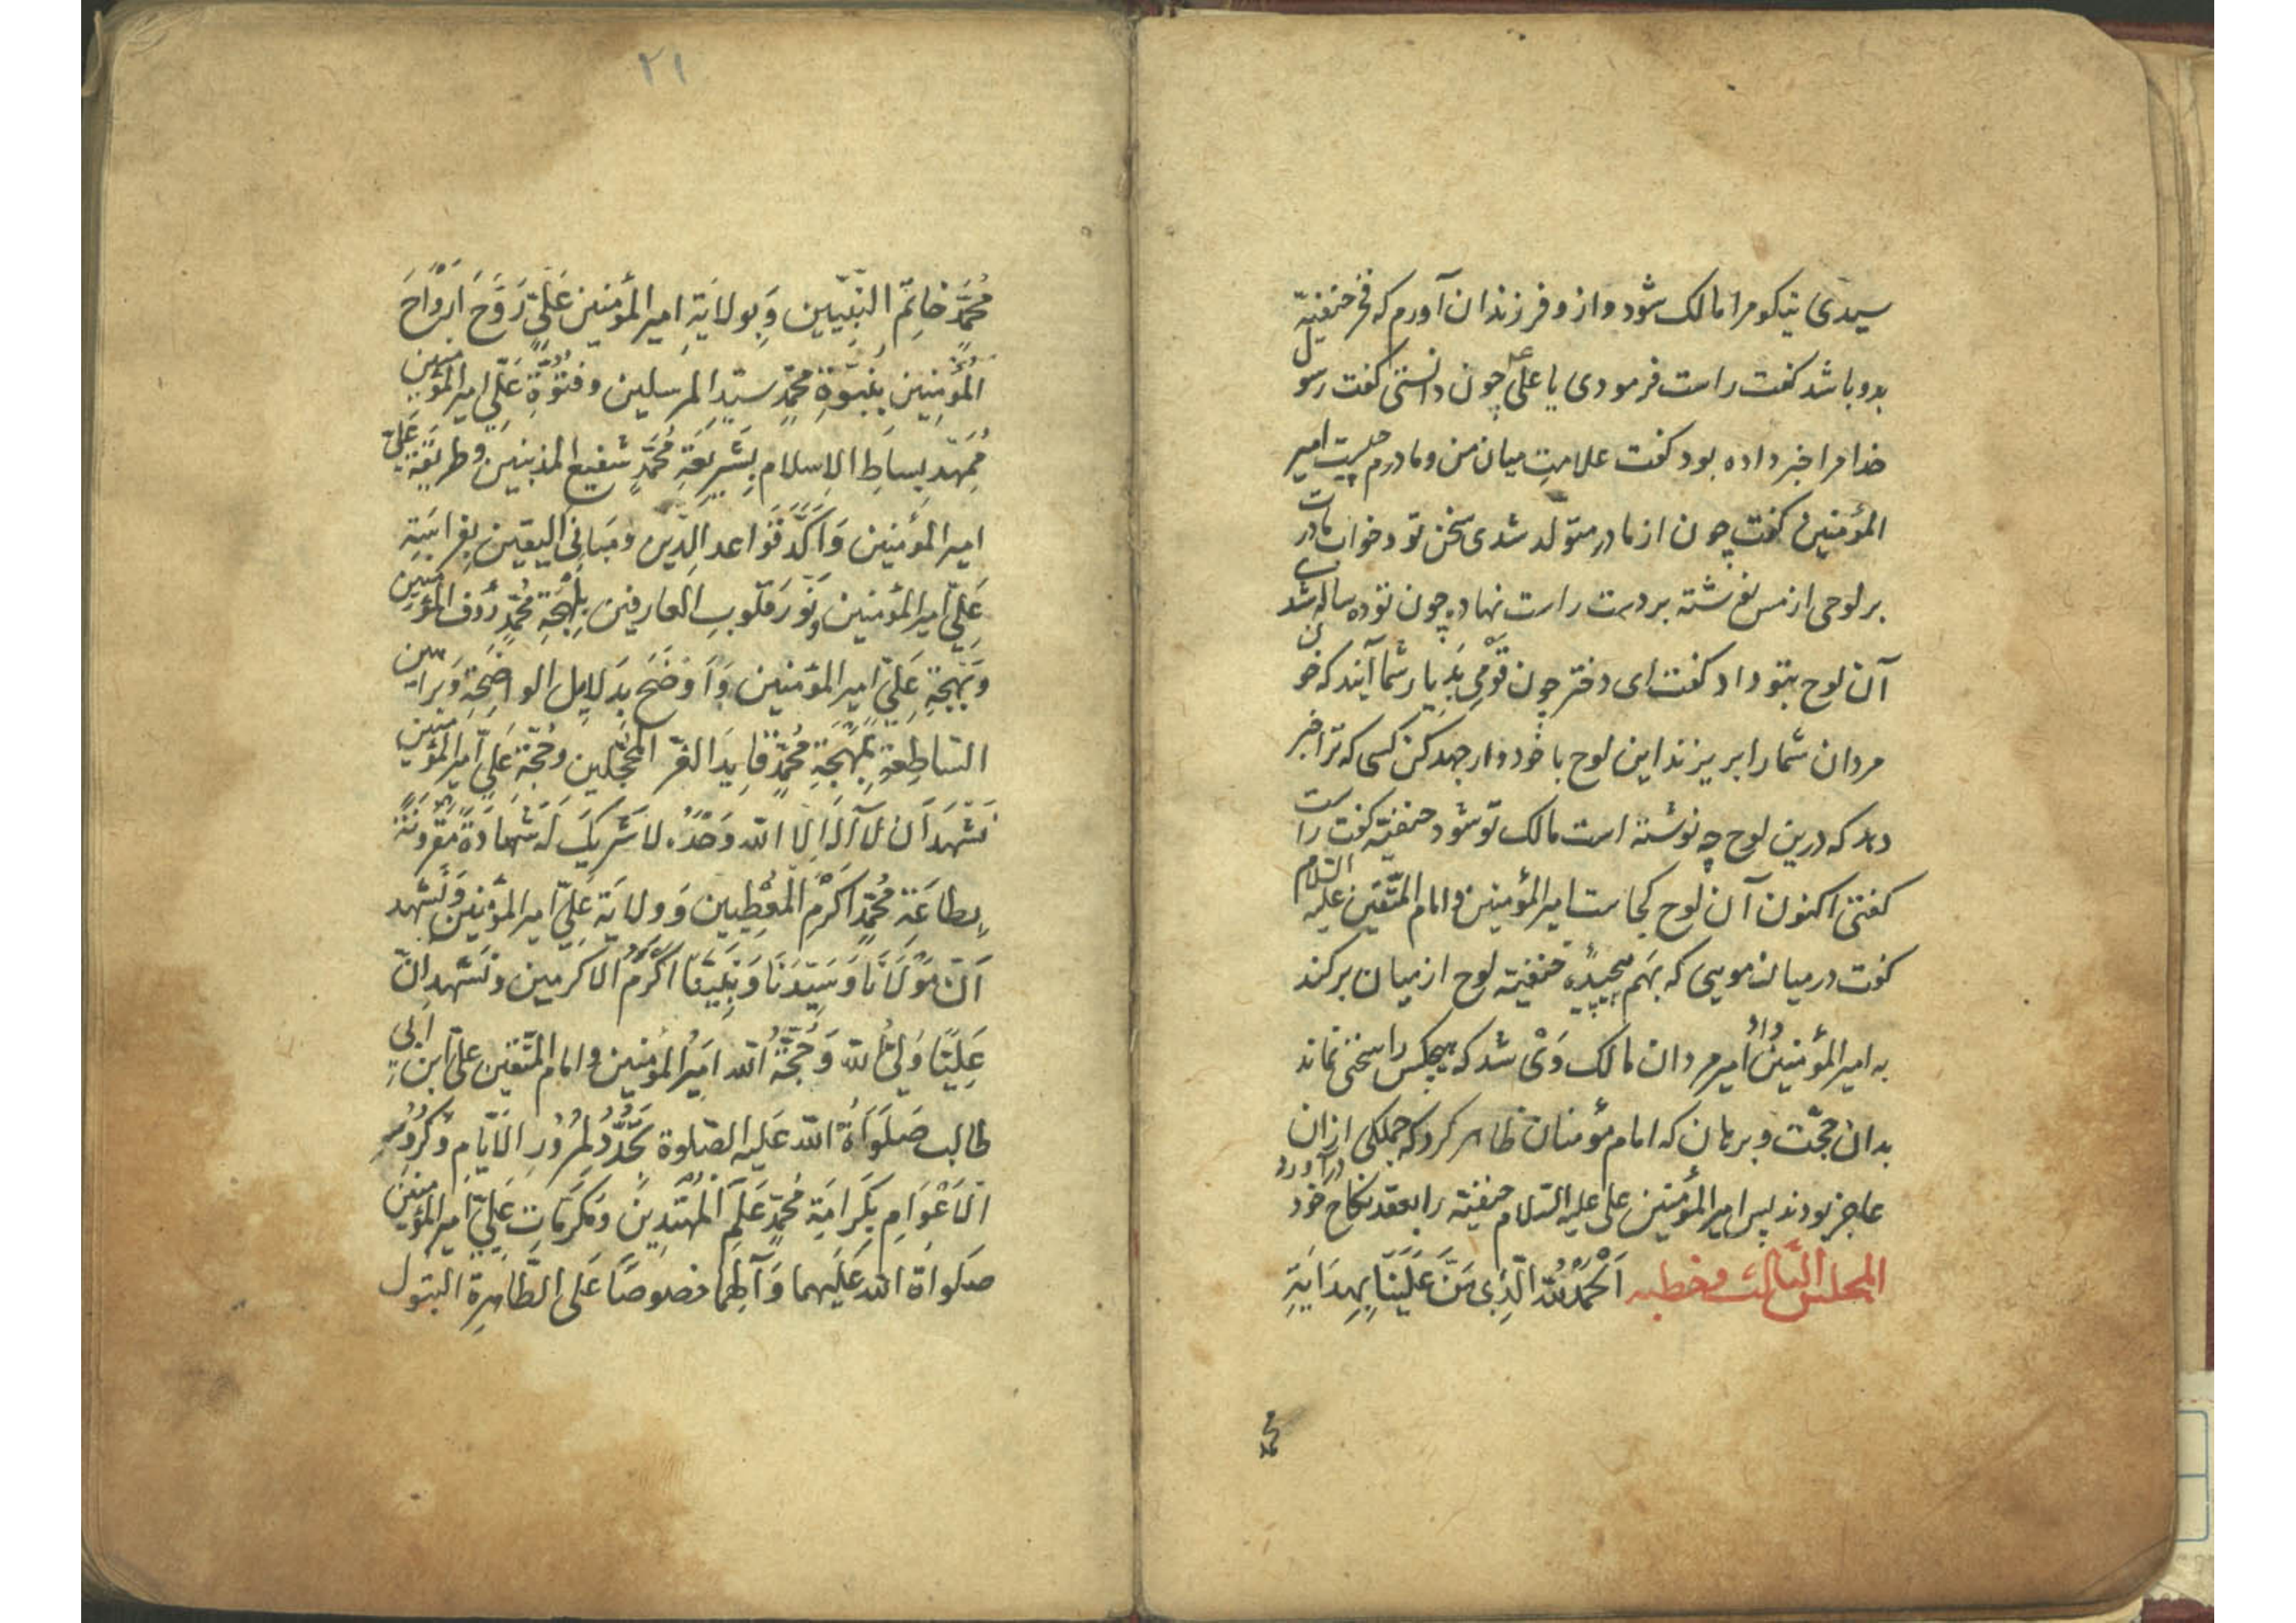 سیدی نیکو مرا مالک شود و ازو فرزندان آورم که فخر حنفیّه
بدو باشد گفت راست فرمودی یا علی چون دانستی گفت رسول
خدا مرا خبر داده بود گفت علامت میان من و مادرم چیست امیر
المؤمنین گفت چون از مادر متولّد شدی سخن تو و خواب مادرت
بر لوحی از مس نوشته بر دست راست نهاد چون تو ده ساله شدی
آن لوح بتو داد گفت ای دختر چون قومی بدیار شما آیند که خون
مردان شما را بریزند این لوح با خود دار جهد کن کسی که ترا خبر
دهد که درین لوح چه نوشته است مالک تو شود حنفیّه گفت راست
گفتی اکنون آن لوح کجاست امیر المؤمنین و امام المتّقین علیه السّلام
گفت در میان مویی که بهم پیچیدهٔ حنفیّه لوح از میان برکند
به امیر المؤمنین داد امیر مردان مالک وی شد که هیچکس را سخنی نماند
بدان حجّت و برهان که امام مؤمنان ظاهر کرد که جملکی ازان
عاجز بودند پس امیر المؤمنین علی علیه السّلام حنفیّه را بعقد نکاح خود درآورد
المجلس الثّالث و خطبه اَلْحَمْدُ لِلّه الَّذِی مَنَّ عَلَیْنَا بِهِدَایَةِ
محمد
۲۱
مُحَمَّدٍ خَاتِمِ النَّبِیّین وَبِوِلایَةِ امیر المؤمنین عَلِیٍّ رَوَّحَ اَرْوَاحَ
المُؤْمِنِین بِنُبُوَّةِ مُحَمَّدٍ سیّد المرسلین و فُتُوَّةِ عَلِیٍّ امیر المؤمنین
مُمَهِّد بِسَاطِ الاِسلام بِشَرِیعَةِ مُحَمَّدٍ شفیع المذنبین و طریقة عَلِیٍّ
امیر المؤمنین وَاَکَّدَ قَوَاعد الدِّین و مَبَانِی الیقین بِقرابَةِ
عَلِیٍّ امیر المؤمنین وَنَوَّرَ قلوبِ العارفین بِلَهْجَةِ مُحَمَّدٍ رؤف المؤمنین
وَبَهْجَةِ عَلِیٍّ امیر المؤمنین وَاَوضَحَ بِدَلایِلِ الواضِحَةِ وَبَرَاهین
السّاطِعَةِ مُحَمَّدٍ قَایِدَ الغرّ المُحَجَّلین وَحُجَّةِ عَلِیٍّ امیر المؤمنین
نَشْهَدُ اَن لآ اِلَهَ اِلّا اللّه وَحْدَهُ لا شَرِیکَ لَه شَهَادَةً مَقْرُونَةً
بِطاعَةِ مُحَمَّدٍ اَکْرَمِ المُعْطِیین وَوِلایَةِ عَلِیٍّ امیر المؤمنین وَنَشْهَد
اَنّ مَوْلَانَا وَسَیِّدَنَا وَنَبِیَّنَا اَکْرَمُ الاکرمین وَنَشْهَد انّ
عَلِیًّا وَلِیُّ اللّه وَحُجَّةُ اللّه اَمِیْرُ المُؤمنین و امام المتّقین علیّ ابن ابی
طالب صَلَوَاةُ اللّه عَلَیه الصّلوة تَجَدَّدُ لِمُرُورِ الاَیّام وَکُرُورِ
الاَعْوَامِ بِکَرَامَةِ مُحَمَّدٍ عَلَمِ الْمُهْتَدِینَ وَمَکْرَمَاتِ عَلِیٍّ امیر المؤمنین
صَلَواة اللّه عَلَیهما وَآلِهِما خصوصًا عَلَی الطَّاهِرَة البتول